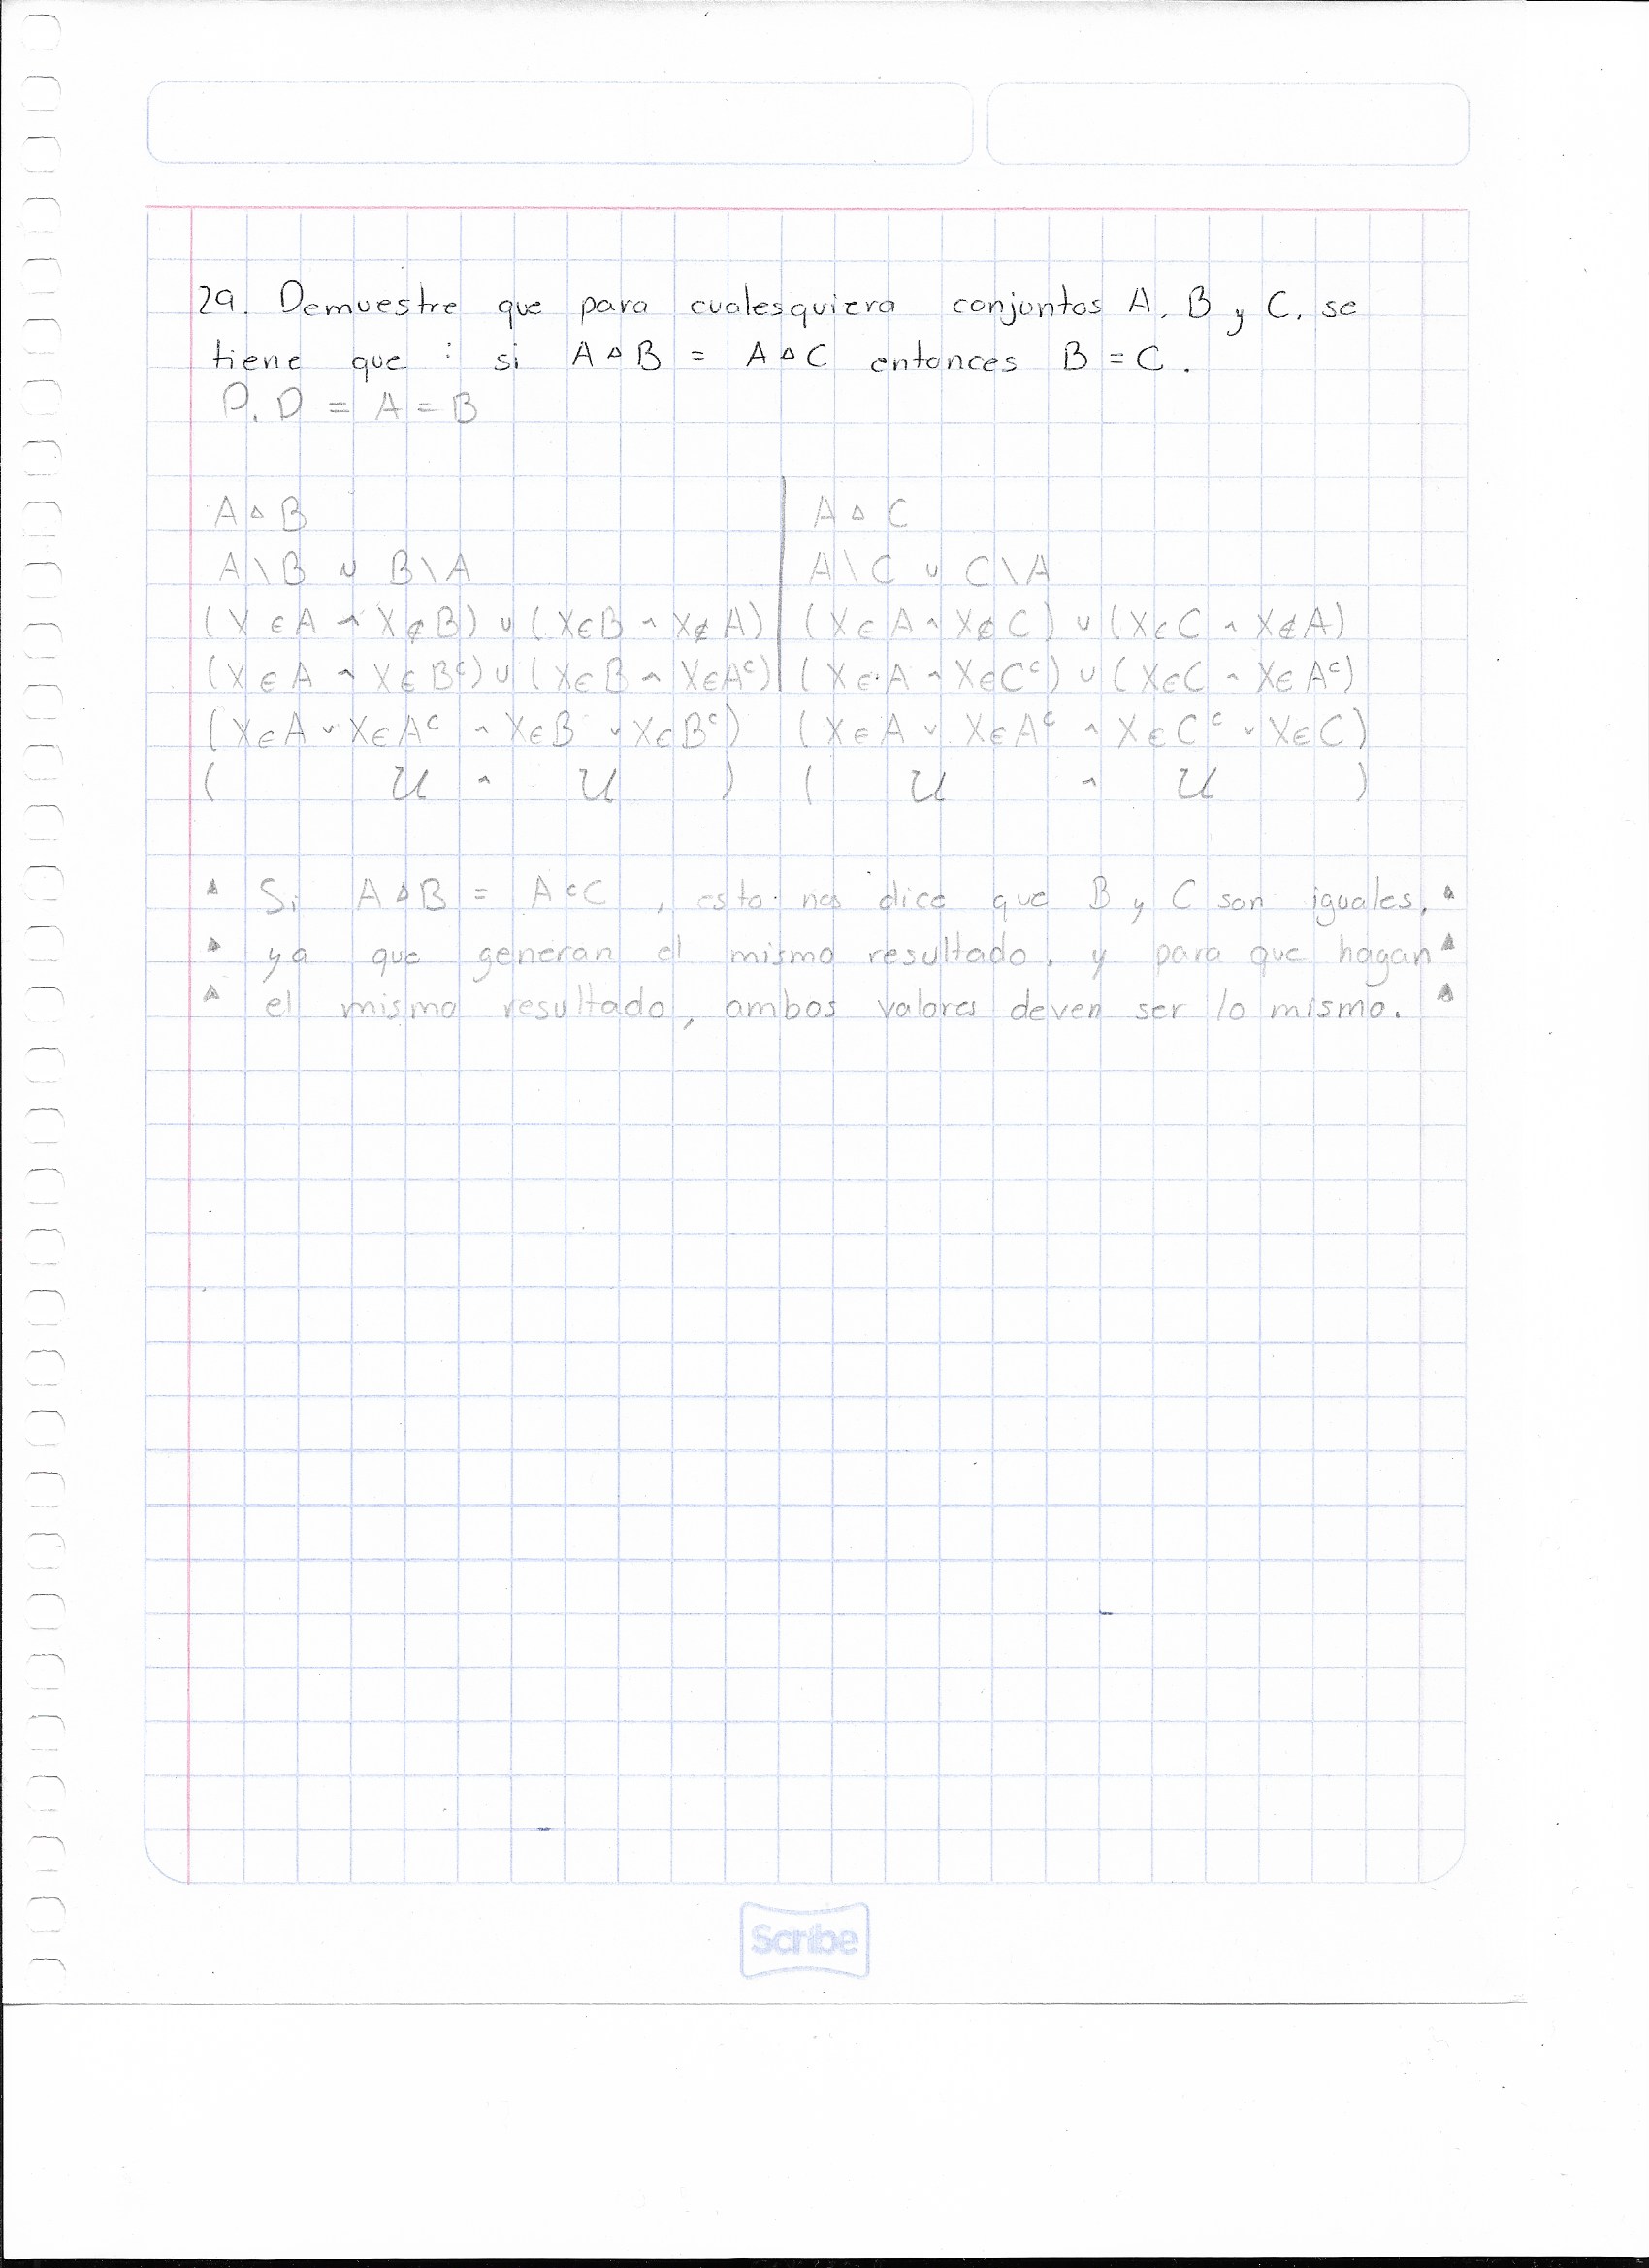 29. Demuestre que para cualesquiera conjuntos A, B y C, se
tiene que : si A ▵ B = A ▵ C entonces B = C.
P. D = A = B
A ▵ B
A \ B ∪ B \ A
(X ∈ A ∧ X ∉ B) ∪ (X ∈ B ∧ X ∉ A)
(X ∈ A ∧ X ∈ Bᶜ) ∪ (X ∈ B ∧ X ∈ Aᶜ)
(X ∈ A ∨ X ∈ Aᶜ ∧ X ∈ B ∨ X ∈ Bᶜ)
( U ∧ U )
A ▵ C
A \ C ∪ C \ A
(X ∈ A ∧ X ∉ C) ∪ (X ∈ C ∧ X ∉ A)
(X ∈ A ∧ X ∈ Cᶜ) ∪ (X ∈ C ∧ X ∈ Aᶜ)
(X ∈ A ∨ X ∈ Aᶜ ∧ X ∈ Cᶜ ∨ X ∈ C)
( U ∧ U )
▵ Si A ▵ B = A C, esto nos dice que B y C son iguales, ▵
▵ ya que generan el mismo resultado, y para que hagan ▵
▵ el mismo resultado, ambos valores deven ser lo mismo. ▵
Scribe